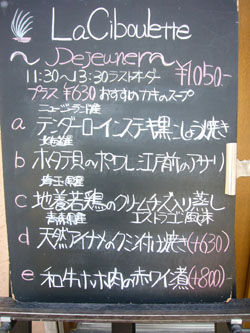 La Ciboulette
～Dejeuner～
11:30～13:30ラストオーダー ¥1050-
プラス ¥630 おすすめカキのスープ
ニュージーランド産
a テンダーロインステーキ黒こしょう焼き
北海道産
b ホタテ貝のポワレ 江戸前のアサリ
埼玉県産
c 地養若鶏のクリームチーズ入り蒸し
青森県産 エストラゴン風味
d 天然アイナメのクミン付け焼き(+630)
e 和牛ホホ肉の赤ワイン煮(+800-)